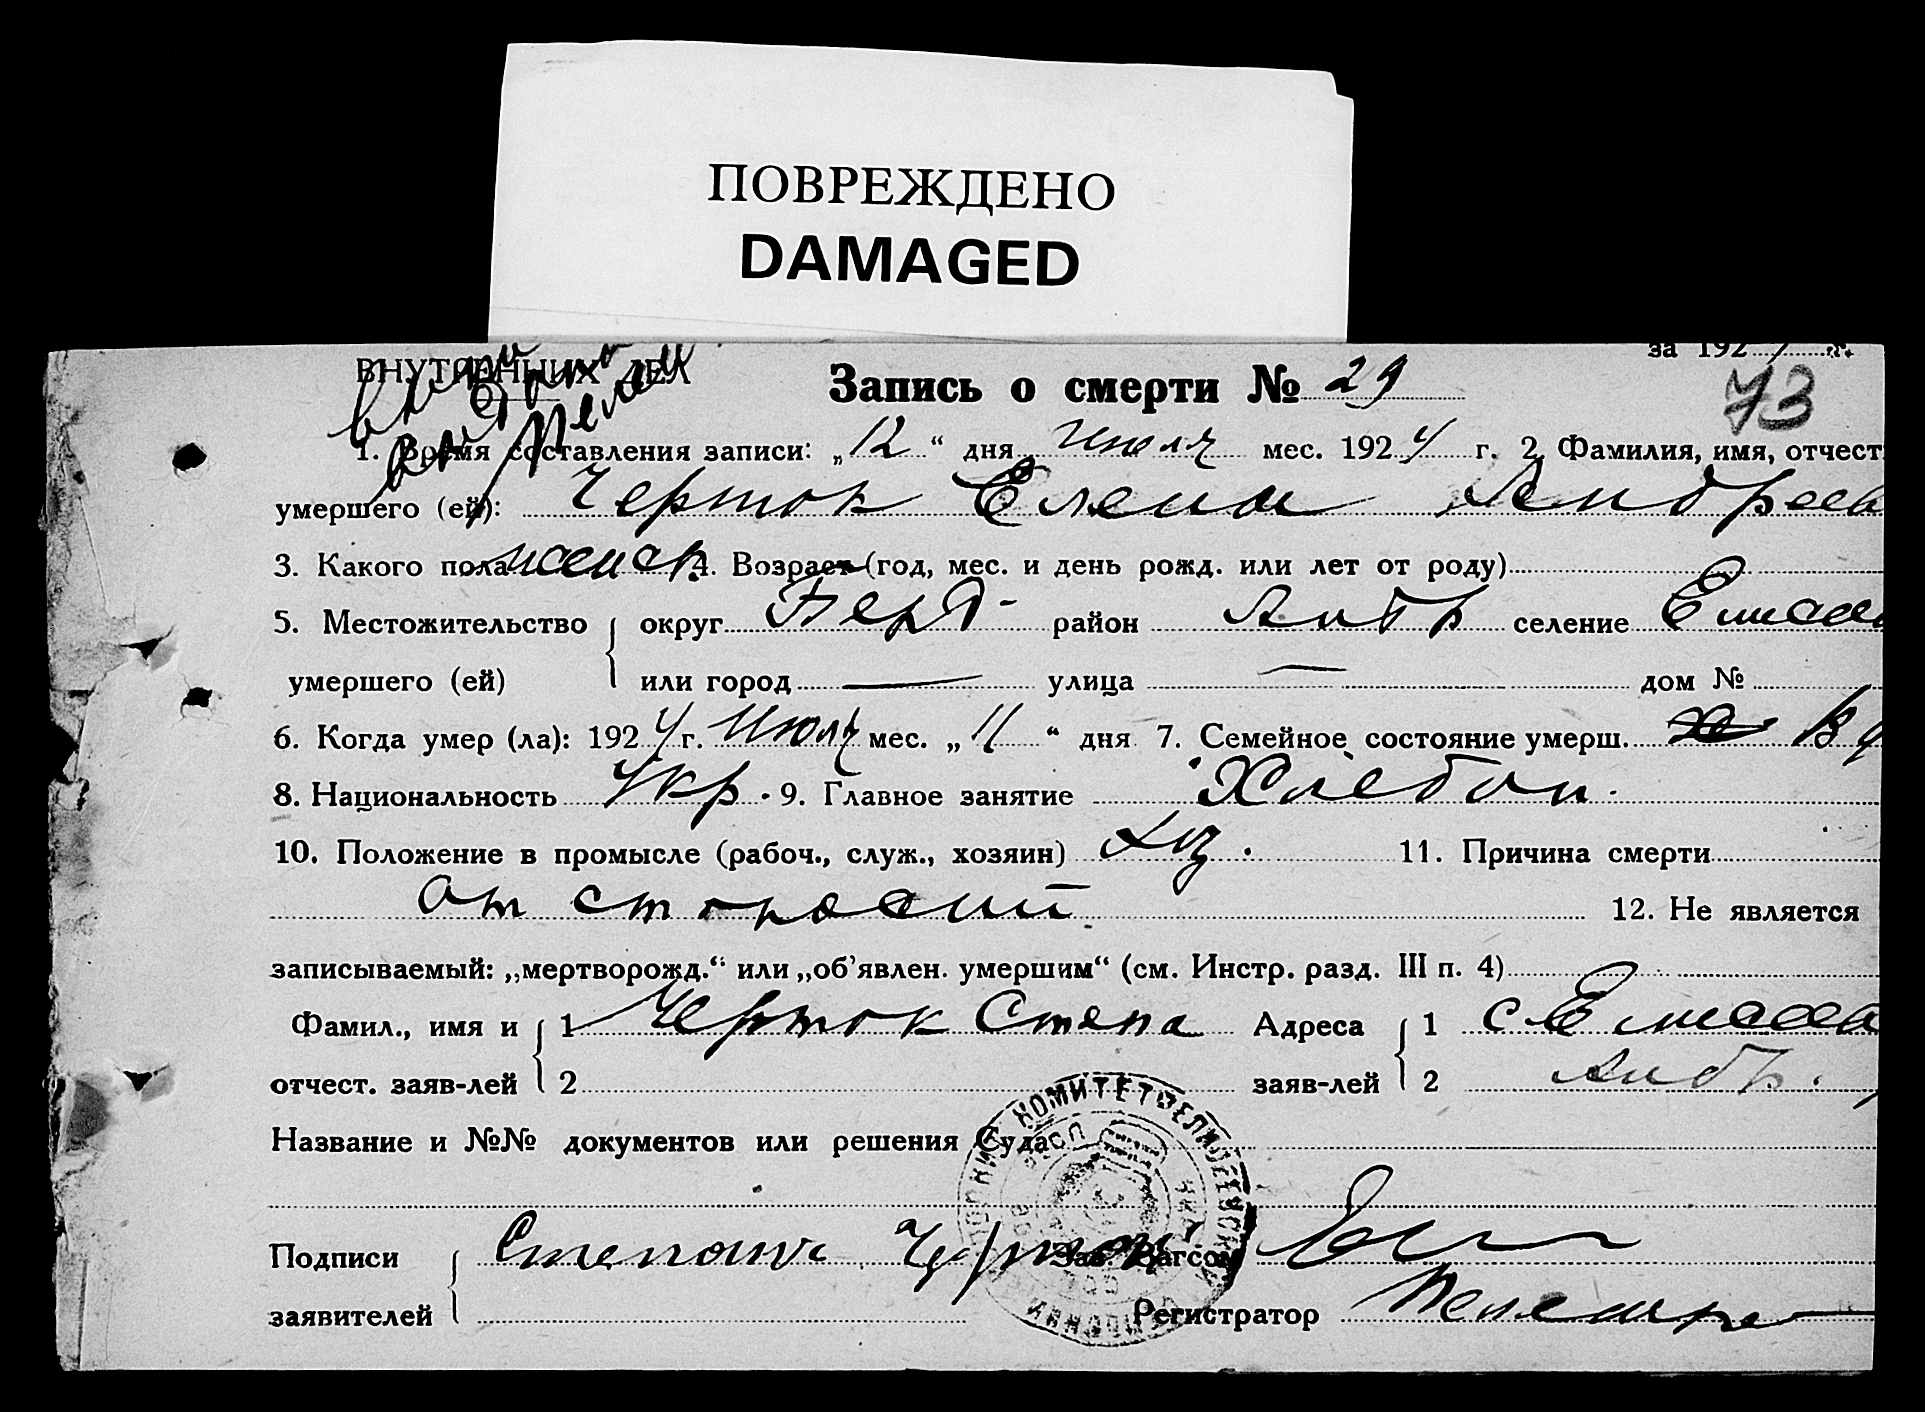 ПОВРЕЖДЕНО
DAMAGED
ВНУТРЕННИХ ДЕЛ
за 192 г.
Запись о смерти № 29
73
1. Время составления записи: „12“ дня Июля мес. 1924 г. 2. Фамилия, имя, отчест
умершего (ей): Черток Елена Андреев
3. Какого пола женск. 4. Возраст (год, мес. и день рожд. или лет от роду)
5. Местожительство округ Берд- район Андр селение
умершего (ей) или город — улица — дом №
6. Когда умер (ла): 1924 г. Июля мес. „11“ дня 7. Семейное состояние умерш. Вд
8. Национальность Укр. 9. Главное занятие Хлебоп.
10. Положение в промысле (рабоч., служ., хозяин) хоз. 11. Причина смерти
от старости 12. Не является
записываемый: „мертворожд.“ или „об'явлен. умершим“ (см. Инстр. разд. III п. 4)
Фамил., имя и 1 Черток Степа Адреса 1 с.
отчест. заяв-лей 2 заяв-лей 2 Андр.
Название и №№ документов или решения Суда
КОМИТЕТ
Подписи Черток Зав. Загсом
заявителей Регистратор